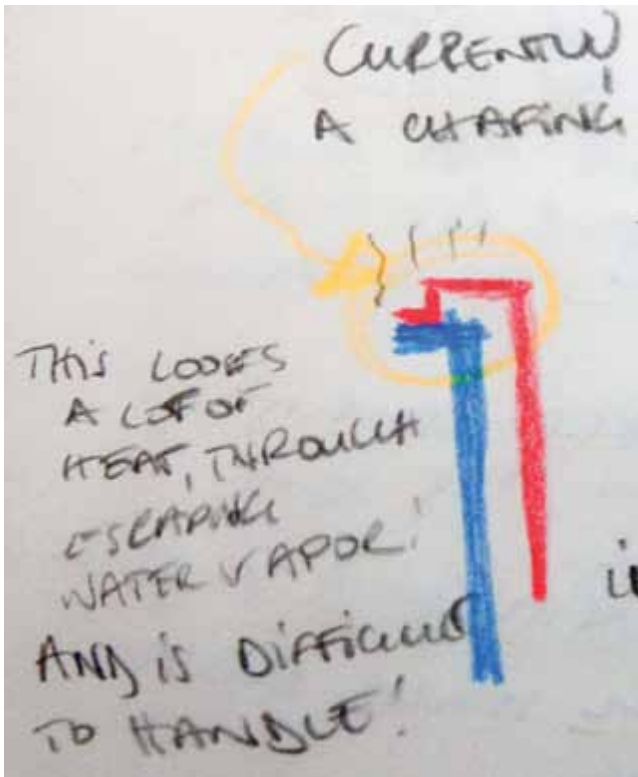 CURRENTLY
A CHAFING
THIS LOOSES
A LOT OF
HEAT, THROUGH
ESCAPING
WATER VAPOR!
AND IS DIFFICULT
TO HANDLE!